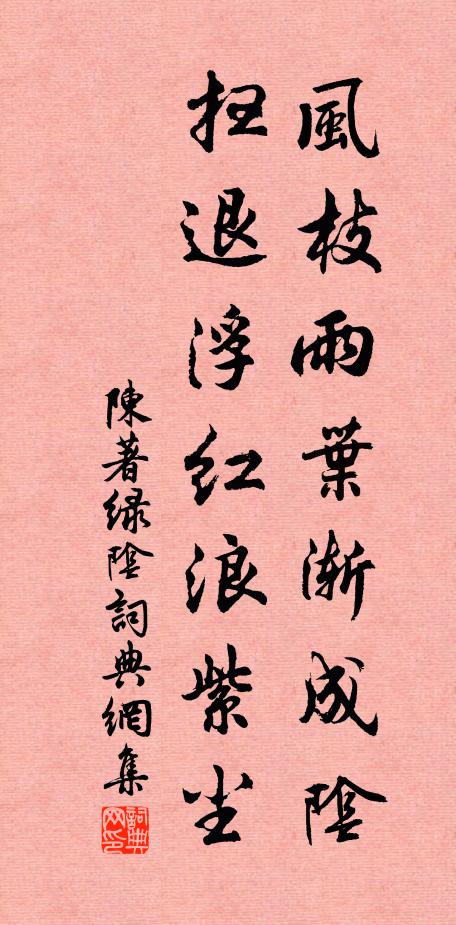 風枝雨葉漸成陰
扫退浮红浪紫尘
陳著绿陰詞典網集
詞典网印